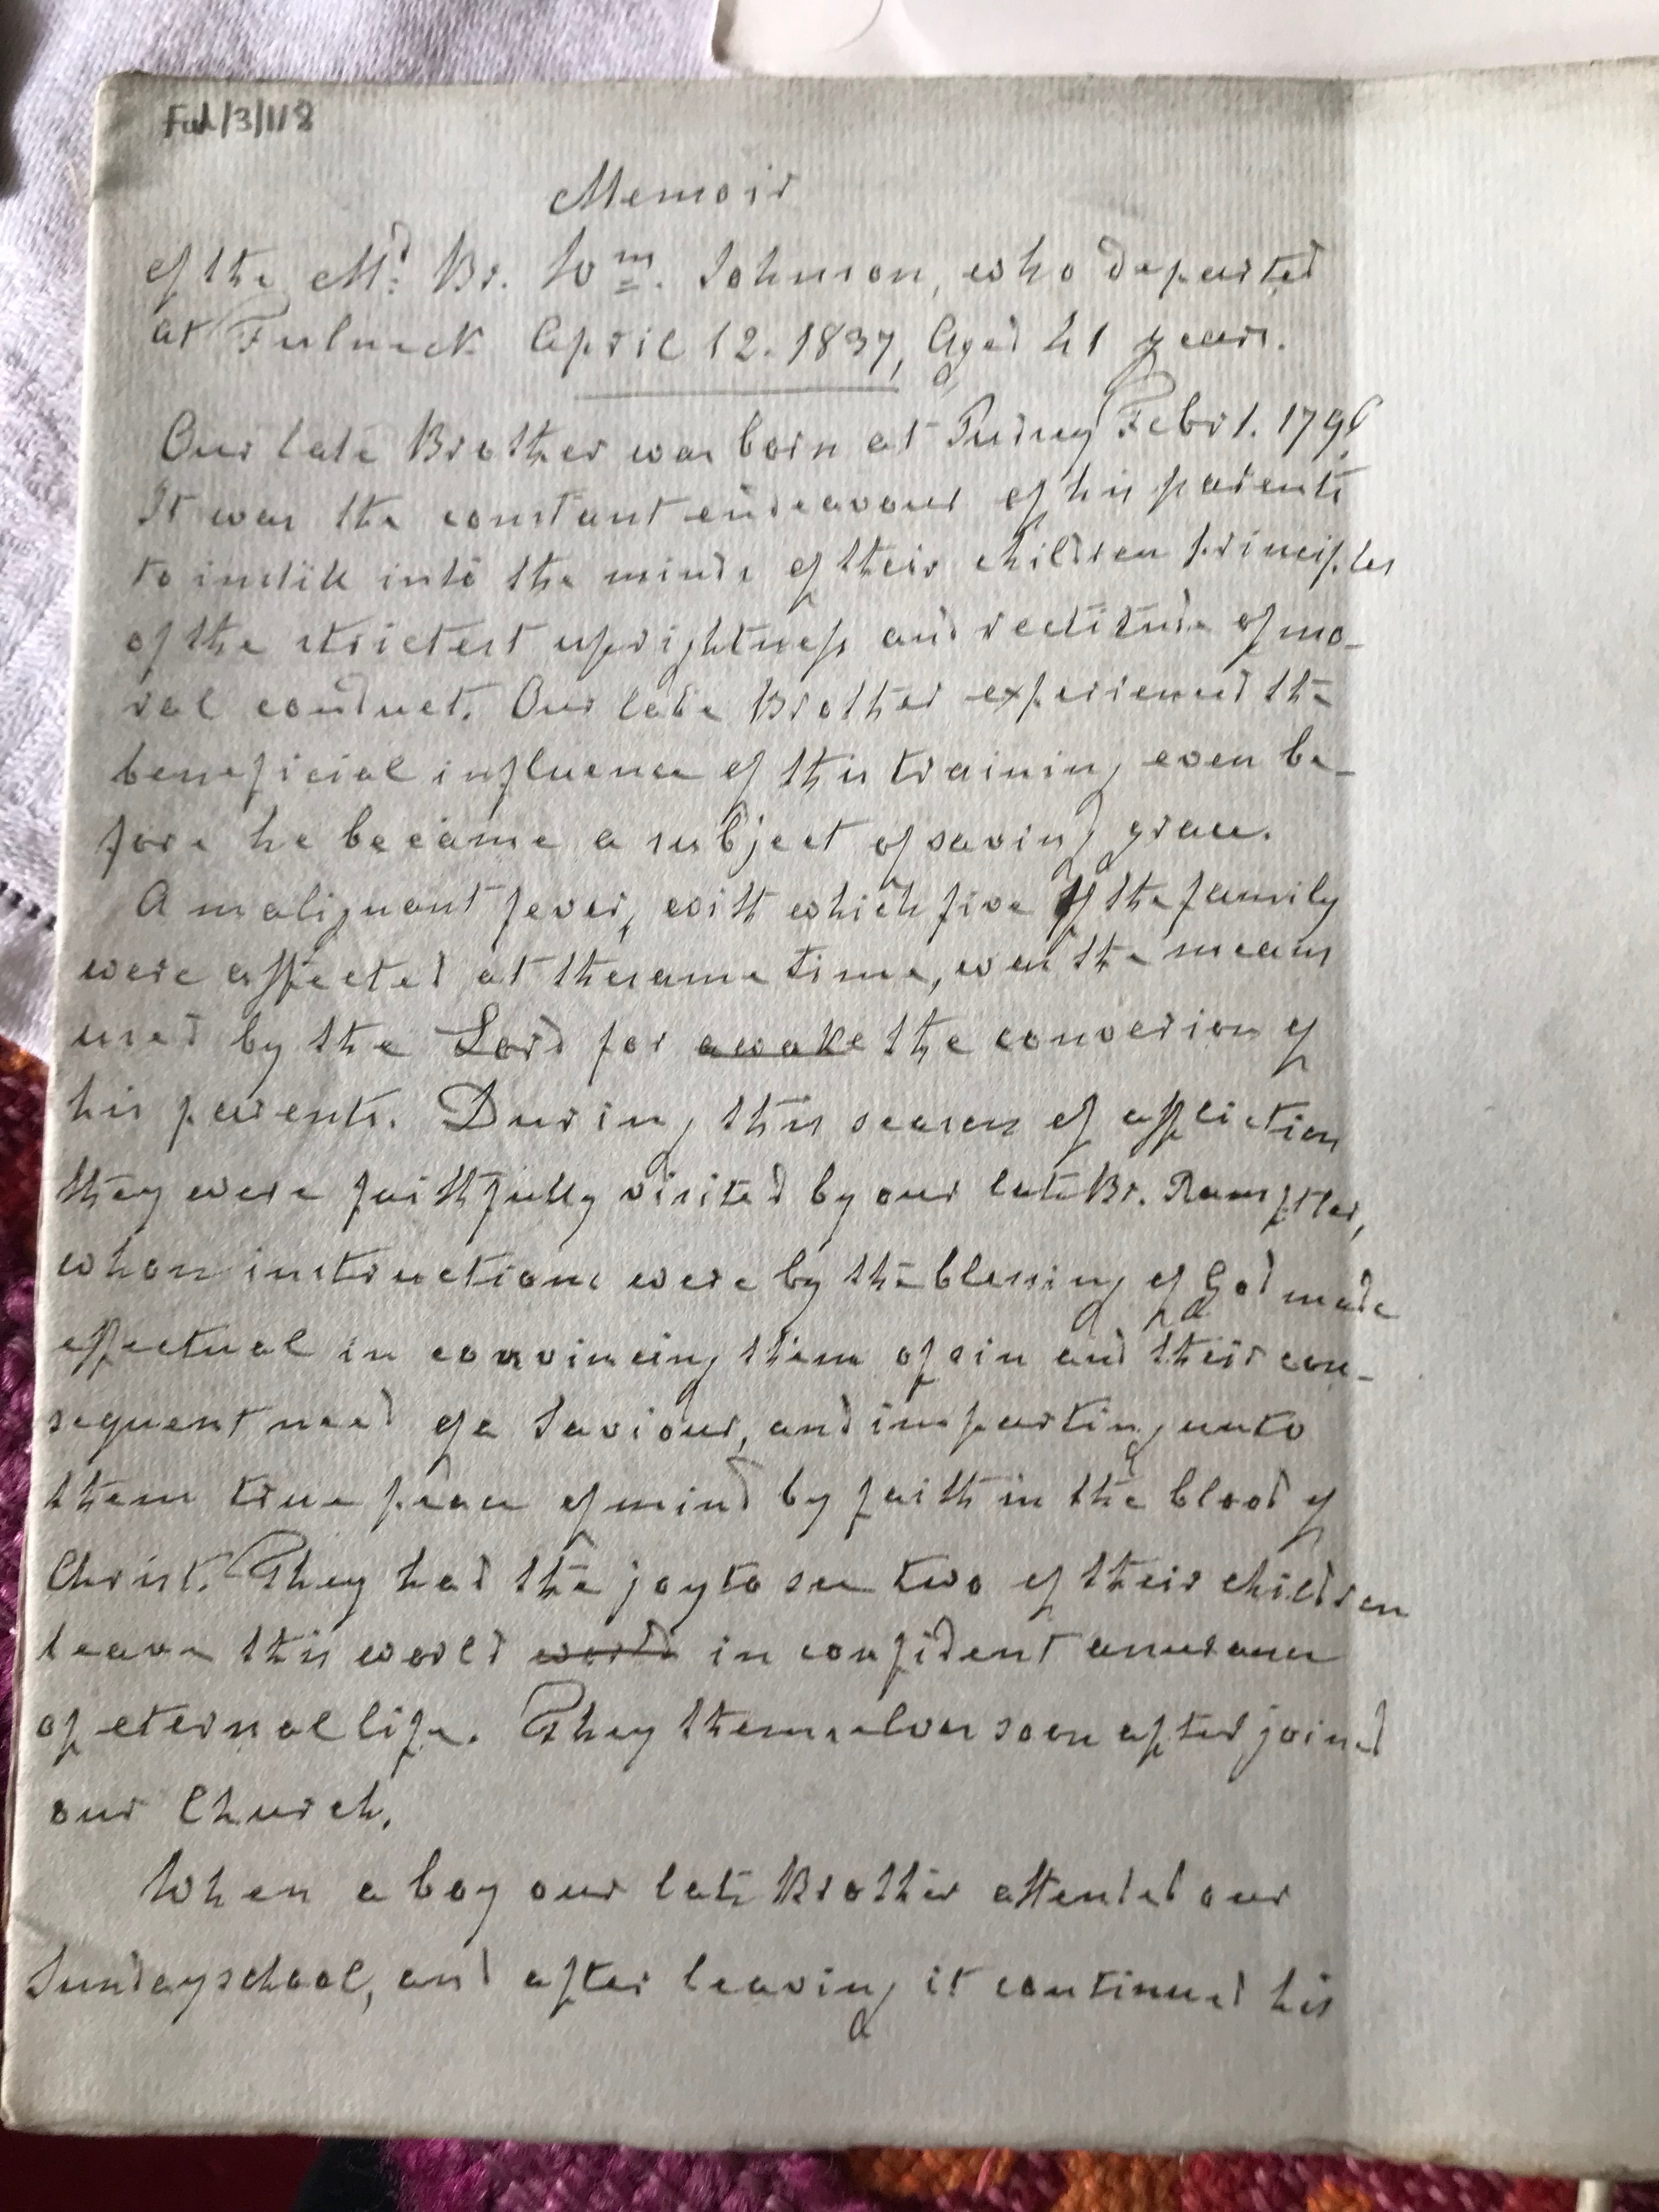 Ful/3/118
Memoir
of the Md. Br. Wm. Johnson, who departed
at Fulneck April 12. 1837, Aged 41 years.
Our late Brother was born at Pudsey Febr 1. 1796
It was the constant endeavour of his parents
to instill into the minds of their children principles
of the strictest uprightness and rectitude of mo-
ral conduct. Our late Brother experienced the
beneficial influence of this training even be-
fore he became a subject of saving grace.
A malignant fever, with which five of the family
were affected at the same time, was the means
used by the Lord for awake the conversion of
his parents. During this season of affliction
they were faithfully visited by our late Br. Ramftler,
whose instructions were by the blessing of God made
effectual in convincing them of sin and their con-
sequent need of a Saviour, and imparting unto
them true peace of mind by faith in the blood of
Christ. They had the joy to see two of their children
leave this world world in confident assurance
of eternal life. They themselves soon after joined
our Church.
When a boy our late Brother attended our
Sunday school, and after leaving it continued his